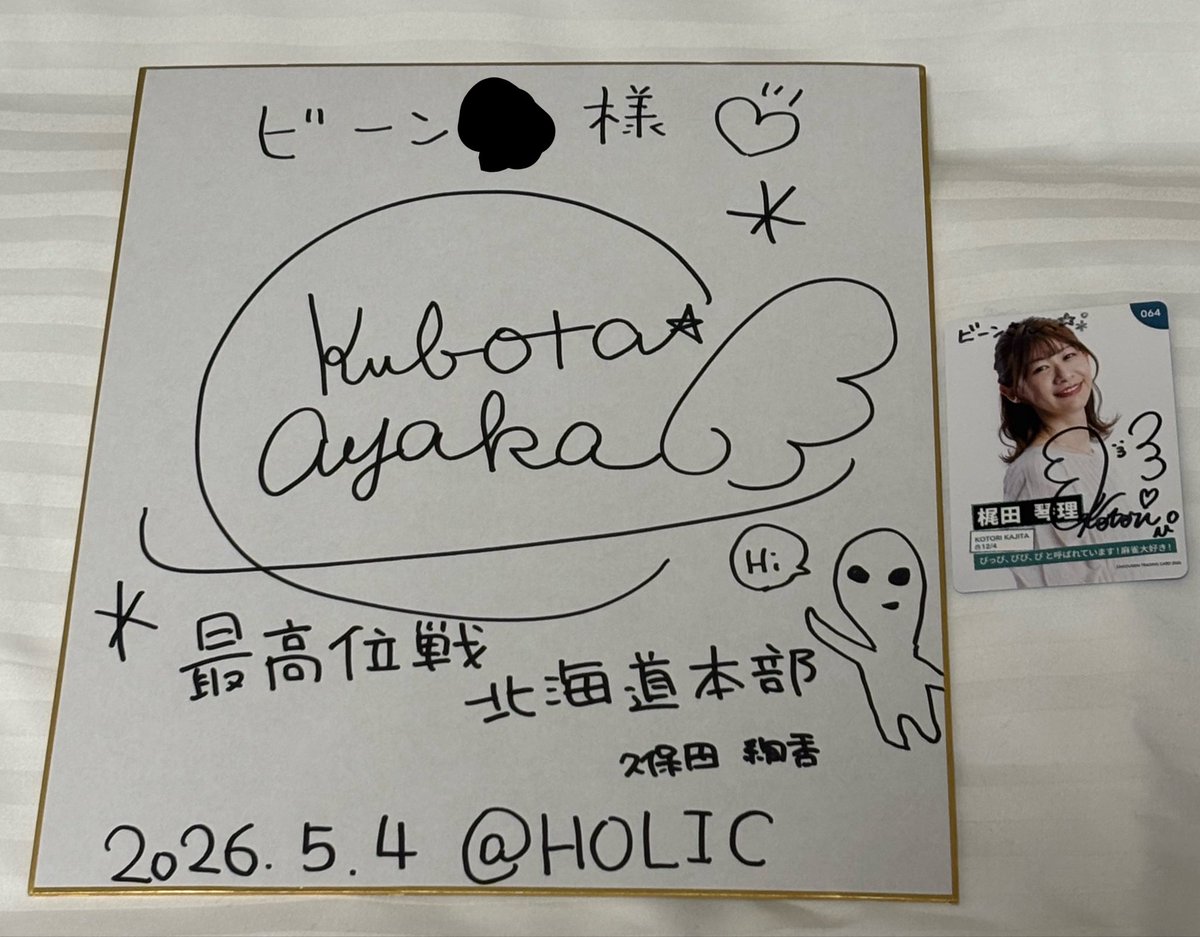 ビーン 様
Kubota
ayaka
Hi
最高位戦
北海道本部
久保田 絢香
2026.5.4 @HOLIC
064
ビーン
梶田 琴理
Kotori
KOTORI KAJITA
12/4
ぴっぴ、ぴぴ、ぴ と呼ばれています！麻雀大好き！